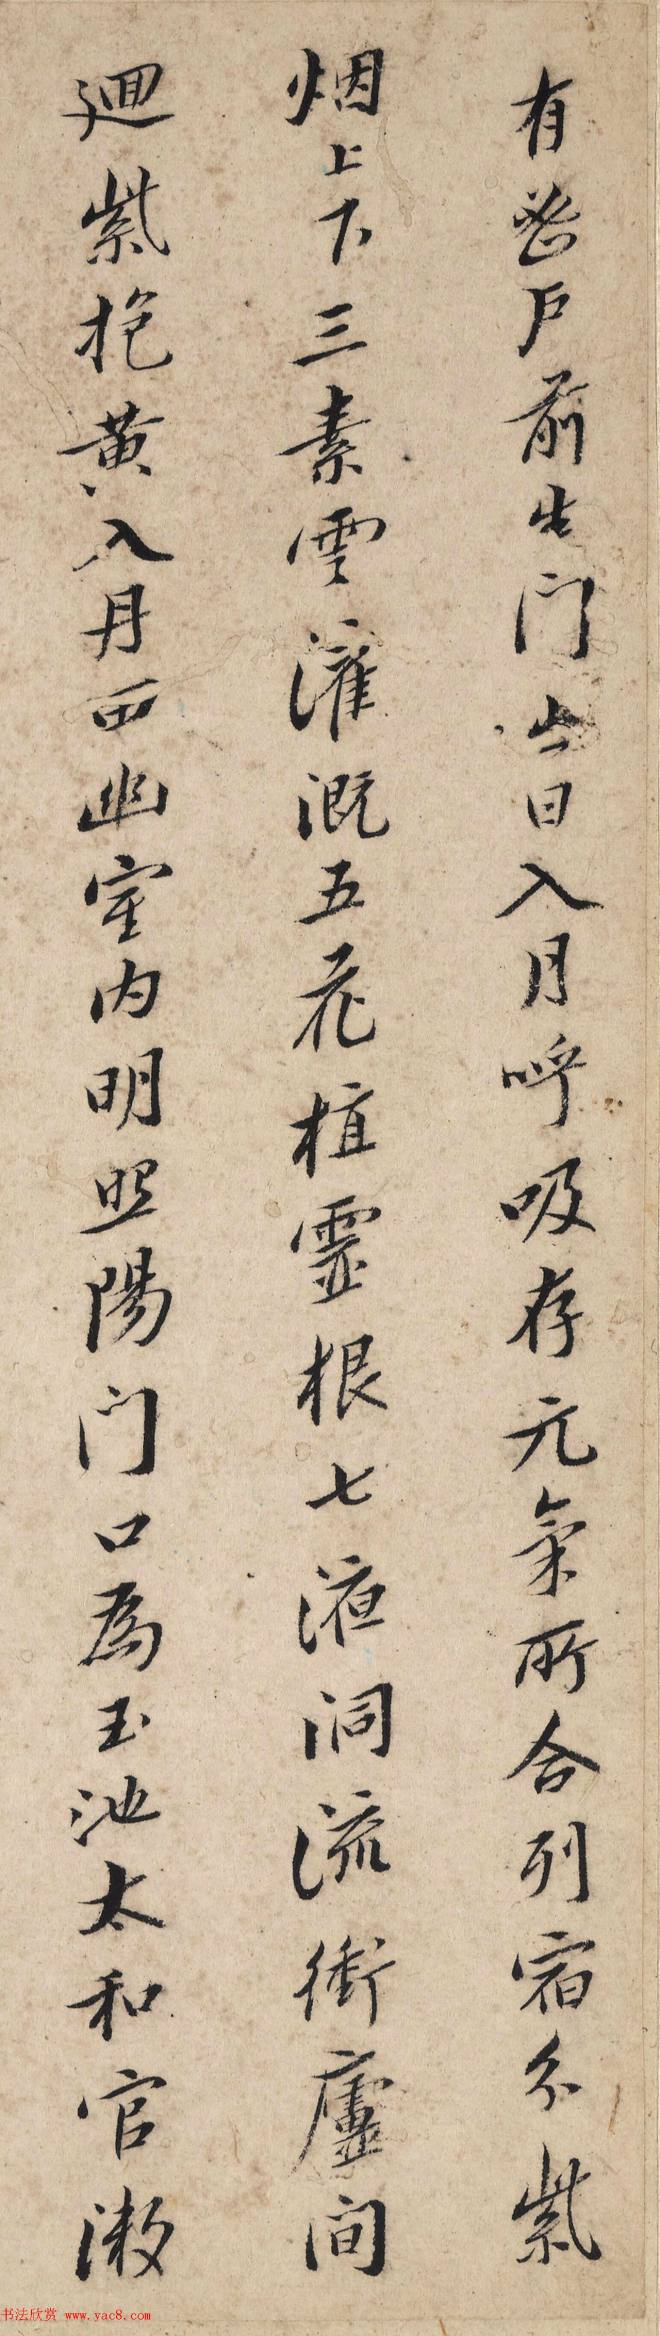 有密户前生门出日入月呼吸存元氣所合列宿分紫
烟上下三素雲灌溉五花植靈根七液洞流衝廬间
迴紫抱黄入丹田幽室内明照陽门口為玉池太和官漱
书法欣赏 www.yac8.com